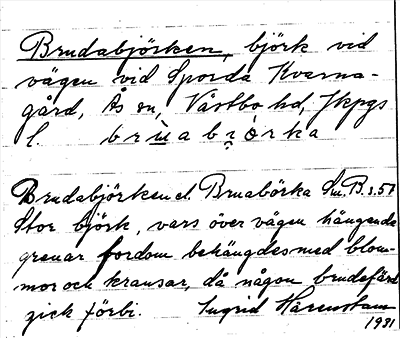 Brudabjörken, björk vid
vägen vid Sporda Kvarna-
gård, Ås sn, Västbo hd, Jkpgs
l. brùabjòrka
Brudabjörken el. Bruabörka Sm. B. s. 51
Stor björk, vars över vägen hängande
grenar fordom behängdes med blom-
mor och kransar, då någon brudefärd
gick förbi. Ingrid Hårenstam
1931